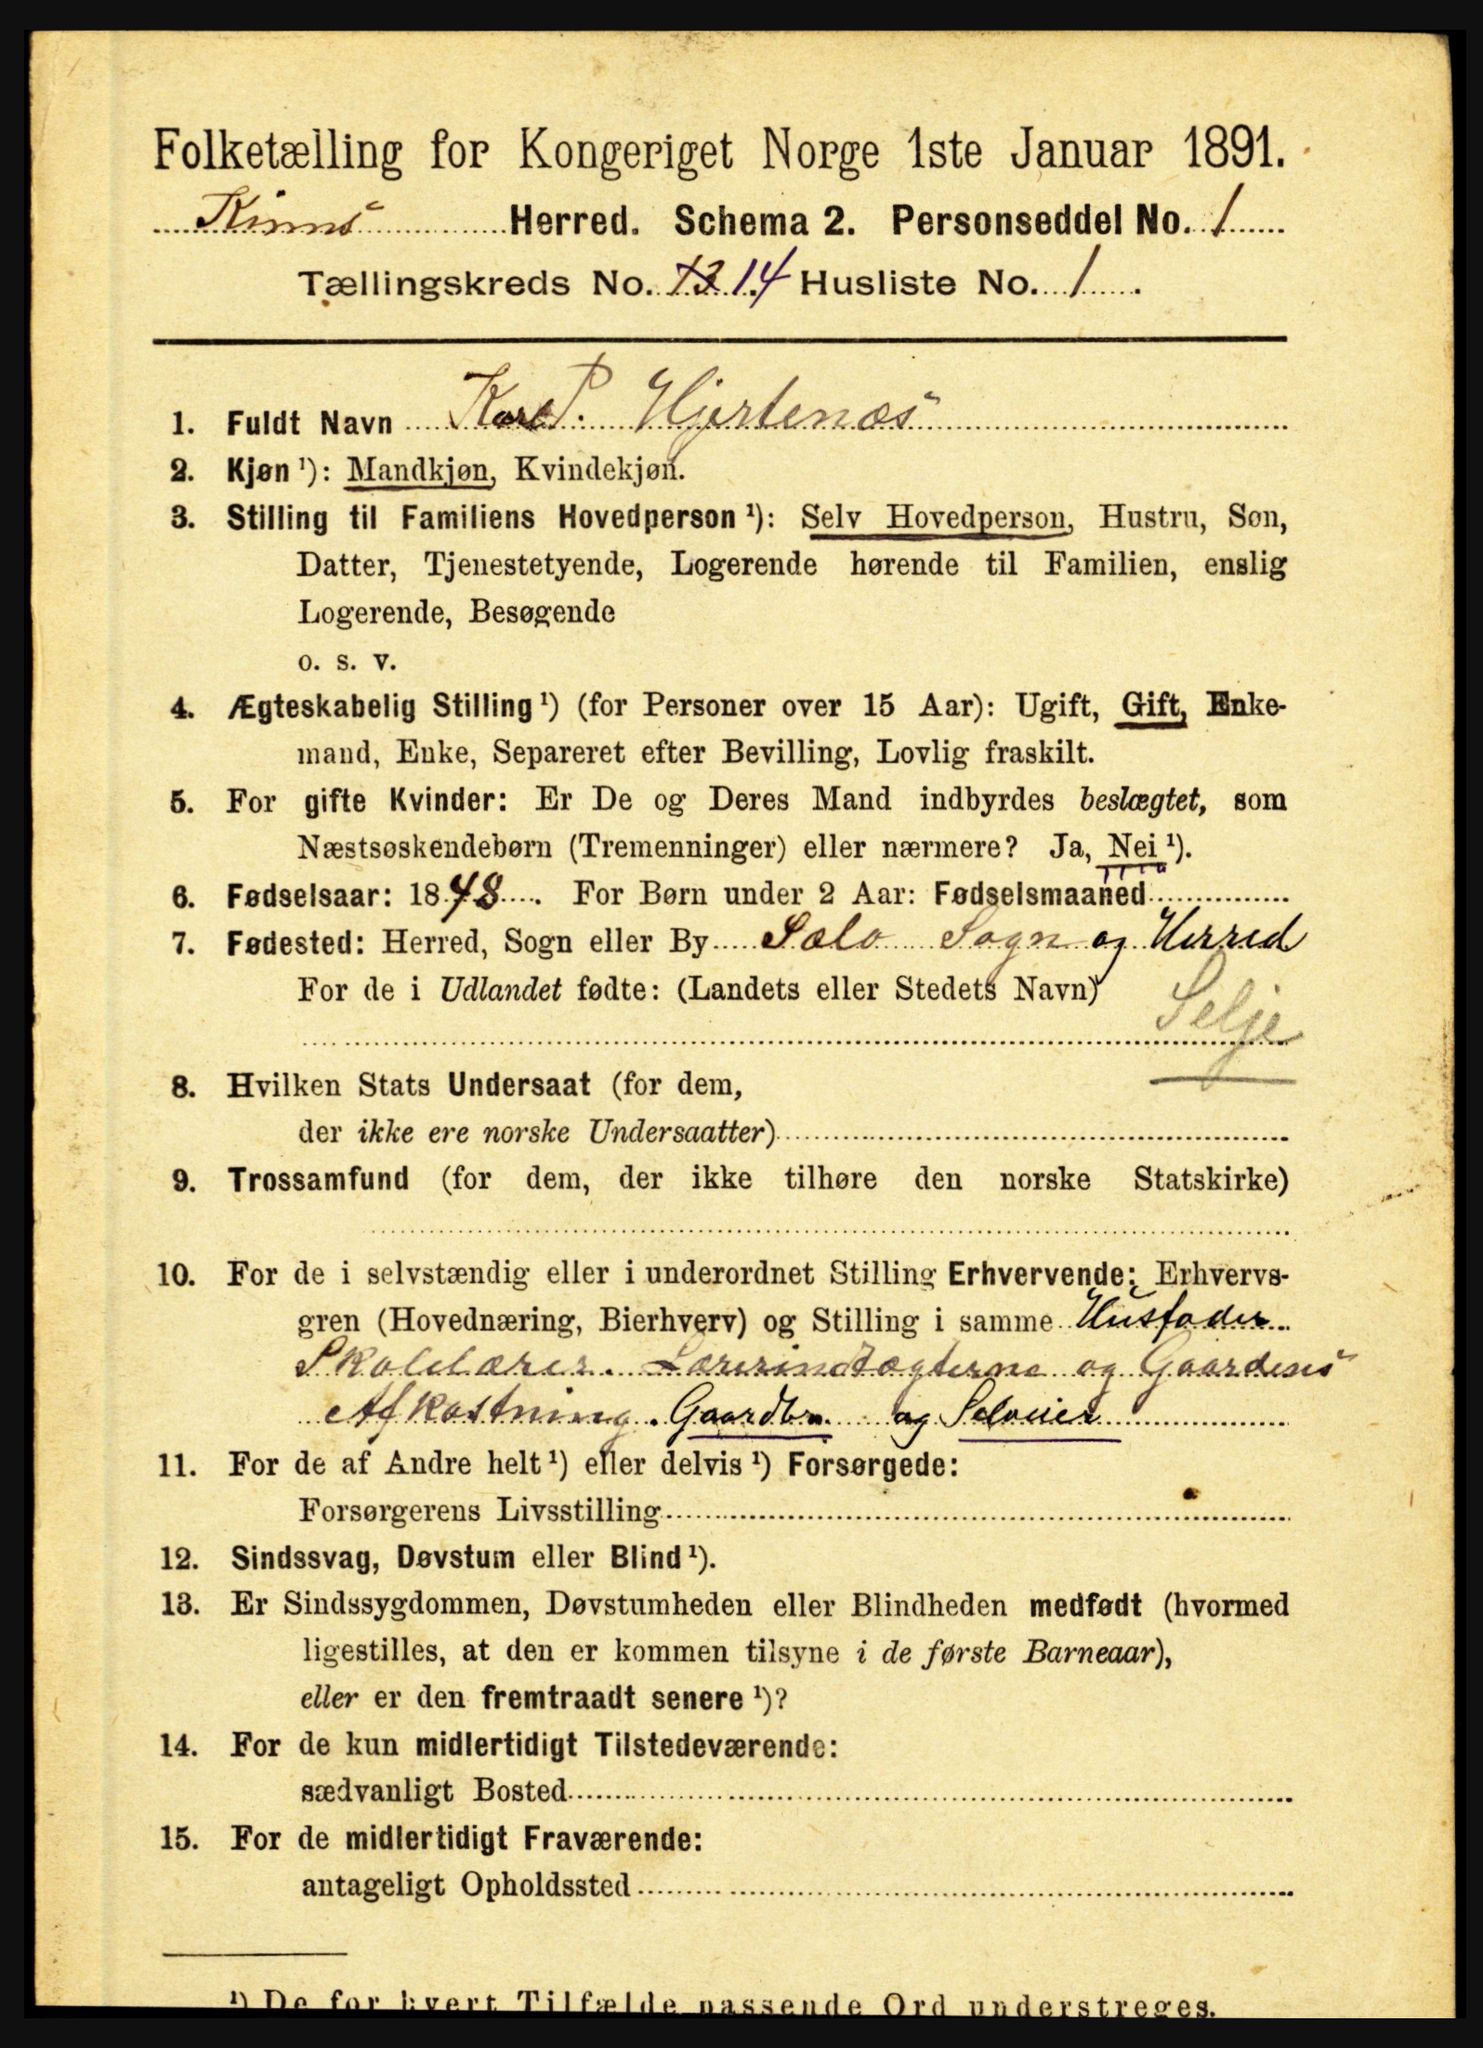 Folketælling for Kongeriget Norge 1ste Januar 1891.
Kinns Herred. Schema 2. Personseddel No. 1
Tællingskreds No. 13 14 Husliste No. 1.
1. Fuldt Navn Karl P. Hjertenæs
2. Kjøn ¹): Mandkjøn, Kvindekjøn.
3. Stilling til Familiens Hovedperson ¹): Selv Hovedperson, Hustru, Søn,
Datter, Tjenestetyende, Logerende hørende til Familien, enslig
Logerende, Besøgende
o. s. v.
4. Ægteskabelig Stilling ¹) (for Personer over 15 Aar): Ugift, Gift, Enke-
mand, Enke, Separeret efter Bevilling, Lovlig fraskilt.
5. For gifte Kvinder: Er De og Deres Mand indbyrdes beslægtet, som
Næstsøskendebørn (Tremenninger) eller nærmere? Ja, Nei ¹).
6. Fødselsaar: 1848. For Børn under 2 Aar: Fødselsmaaned
7. Fødested: Herred, Sogn eller By Sælø Sogn og Herred
For de i Udlandet fødte: (Landets eller Stedets Navn)
Selje
8. Hvilken Stats Undersaat (for dem,
der ikke ere norske Undersaatter)
9. Trossamfund (for dem, der ikke tilhøre den norske Statskirke)
10. For de i selvstændig eller i underordnet Stilling Erhvervende: Erhvervs-
gren (Hovednæring, Bierhverv) og Stilling i samme Husfader
Skolelærer. Lærerindtægterne og Gaardens
Afkastning. Gaardbr. og Selveier
11. For de af Andre helt ¹) eller delvis ¹) Forsørgede:
Forsørgerens Livsstilling
12. Sindssvag, Døvstum eller Blind ¹).
13. Er Sindssygdommen, Døvstumheden eller Blindheden medfødt (hvormed
ligestilles, at den er kommen tilsyne i de første Barneaar),
eller er den fremtraadt senere ¹)?
14. For de kun midlertidigt Tilstedeværende:
sædvanligt Bosted
15. For de midlertidigt Fraværende:
antageligt Opholdssted
¹) De for hvert Tilfælde passende Ord understreges.